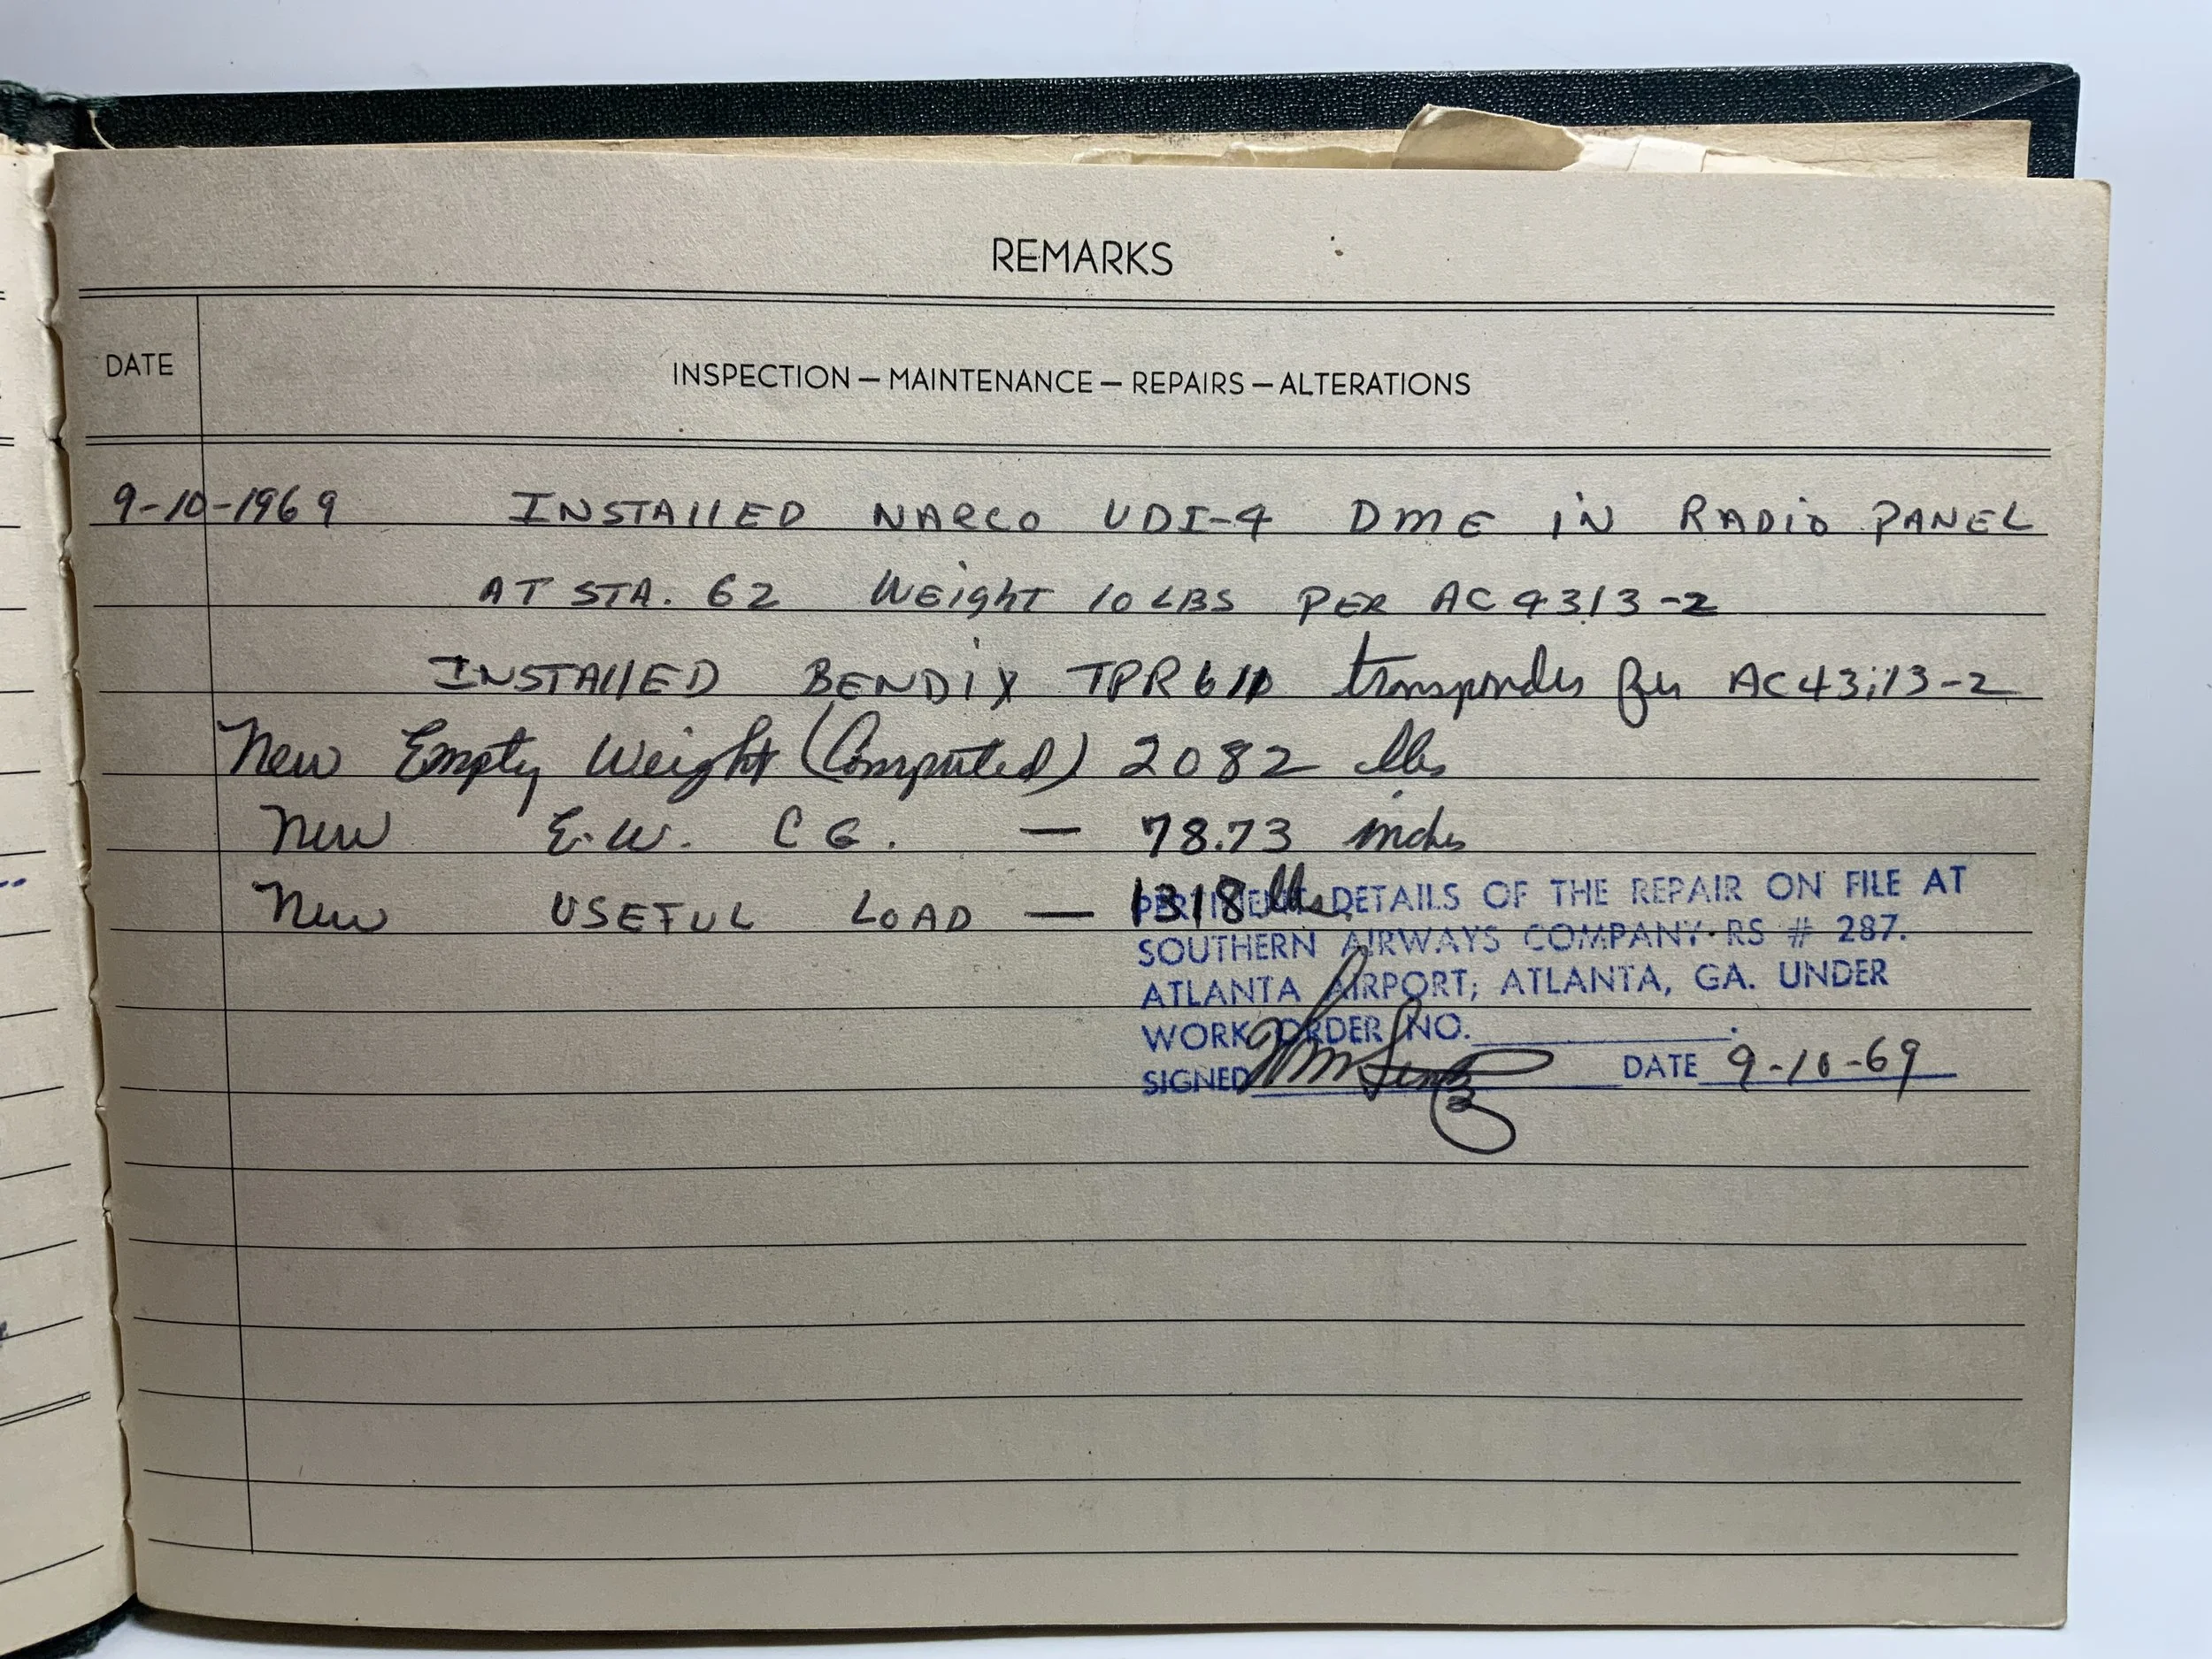 REMARKS
DATE
INSPECTION — MAINTENANCE — REPAIRS — ALTERATIONS
9-10-1969 INSTALLED NARCO UDI-4 DME IN RADIO PANEL
AT STA. 62 WEIGHT 10 LBS PER AC 4313-2
INSTALLED BENDIX TPR610 transponder per AC43;13-2
New Empty Weight (Computed) 2082 lbs
New E.W. CG. — 78.73 inches
New USEFUL LOAD — 1318 lbs.
PERTINENT DETAILS OF THE REPAIR ON FILE AT
SOUTHERN AIRWAYS COMPANY·RS # 287.
ATLANTA AIRPORT; ATLANTA, GA. UNDER
WORK ORDER NO.
SIGNED DATE 9-10-69